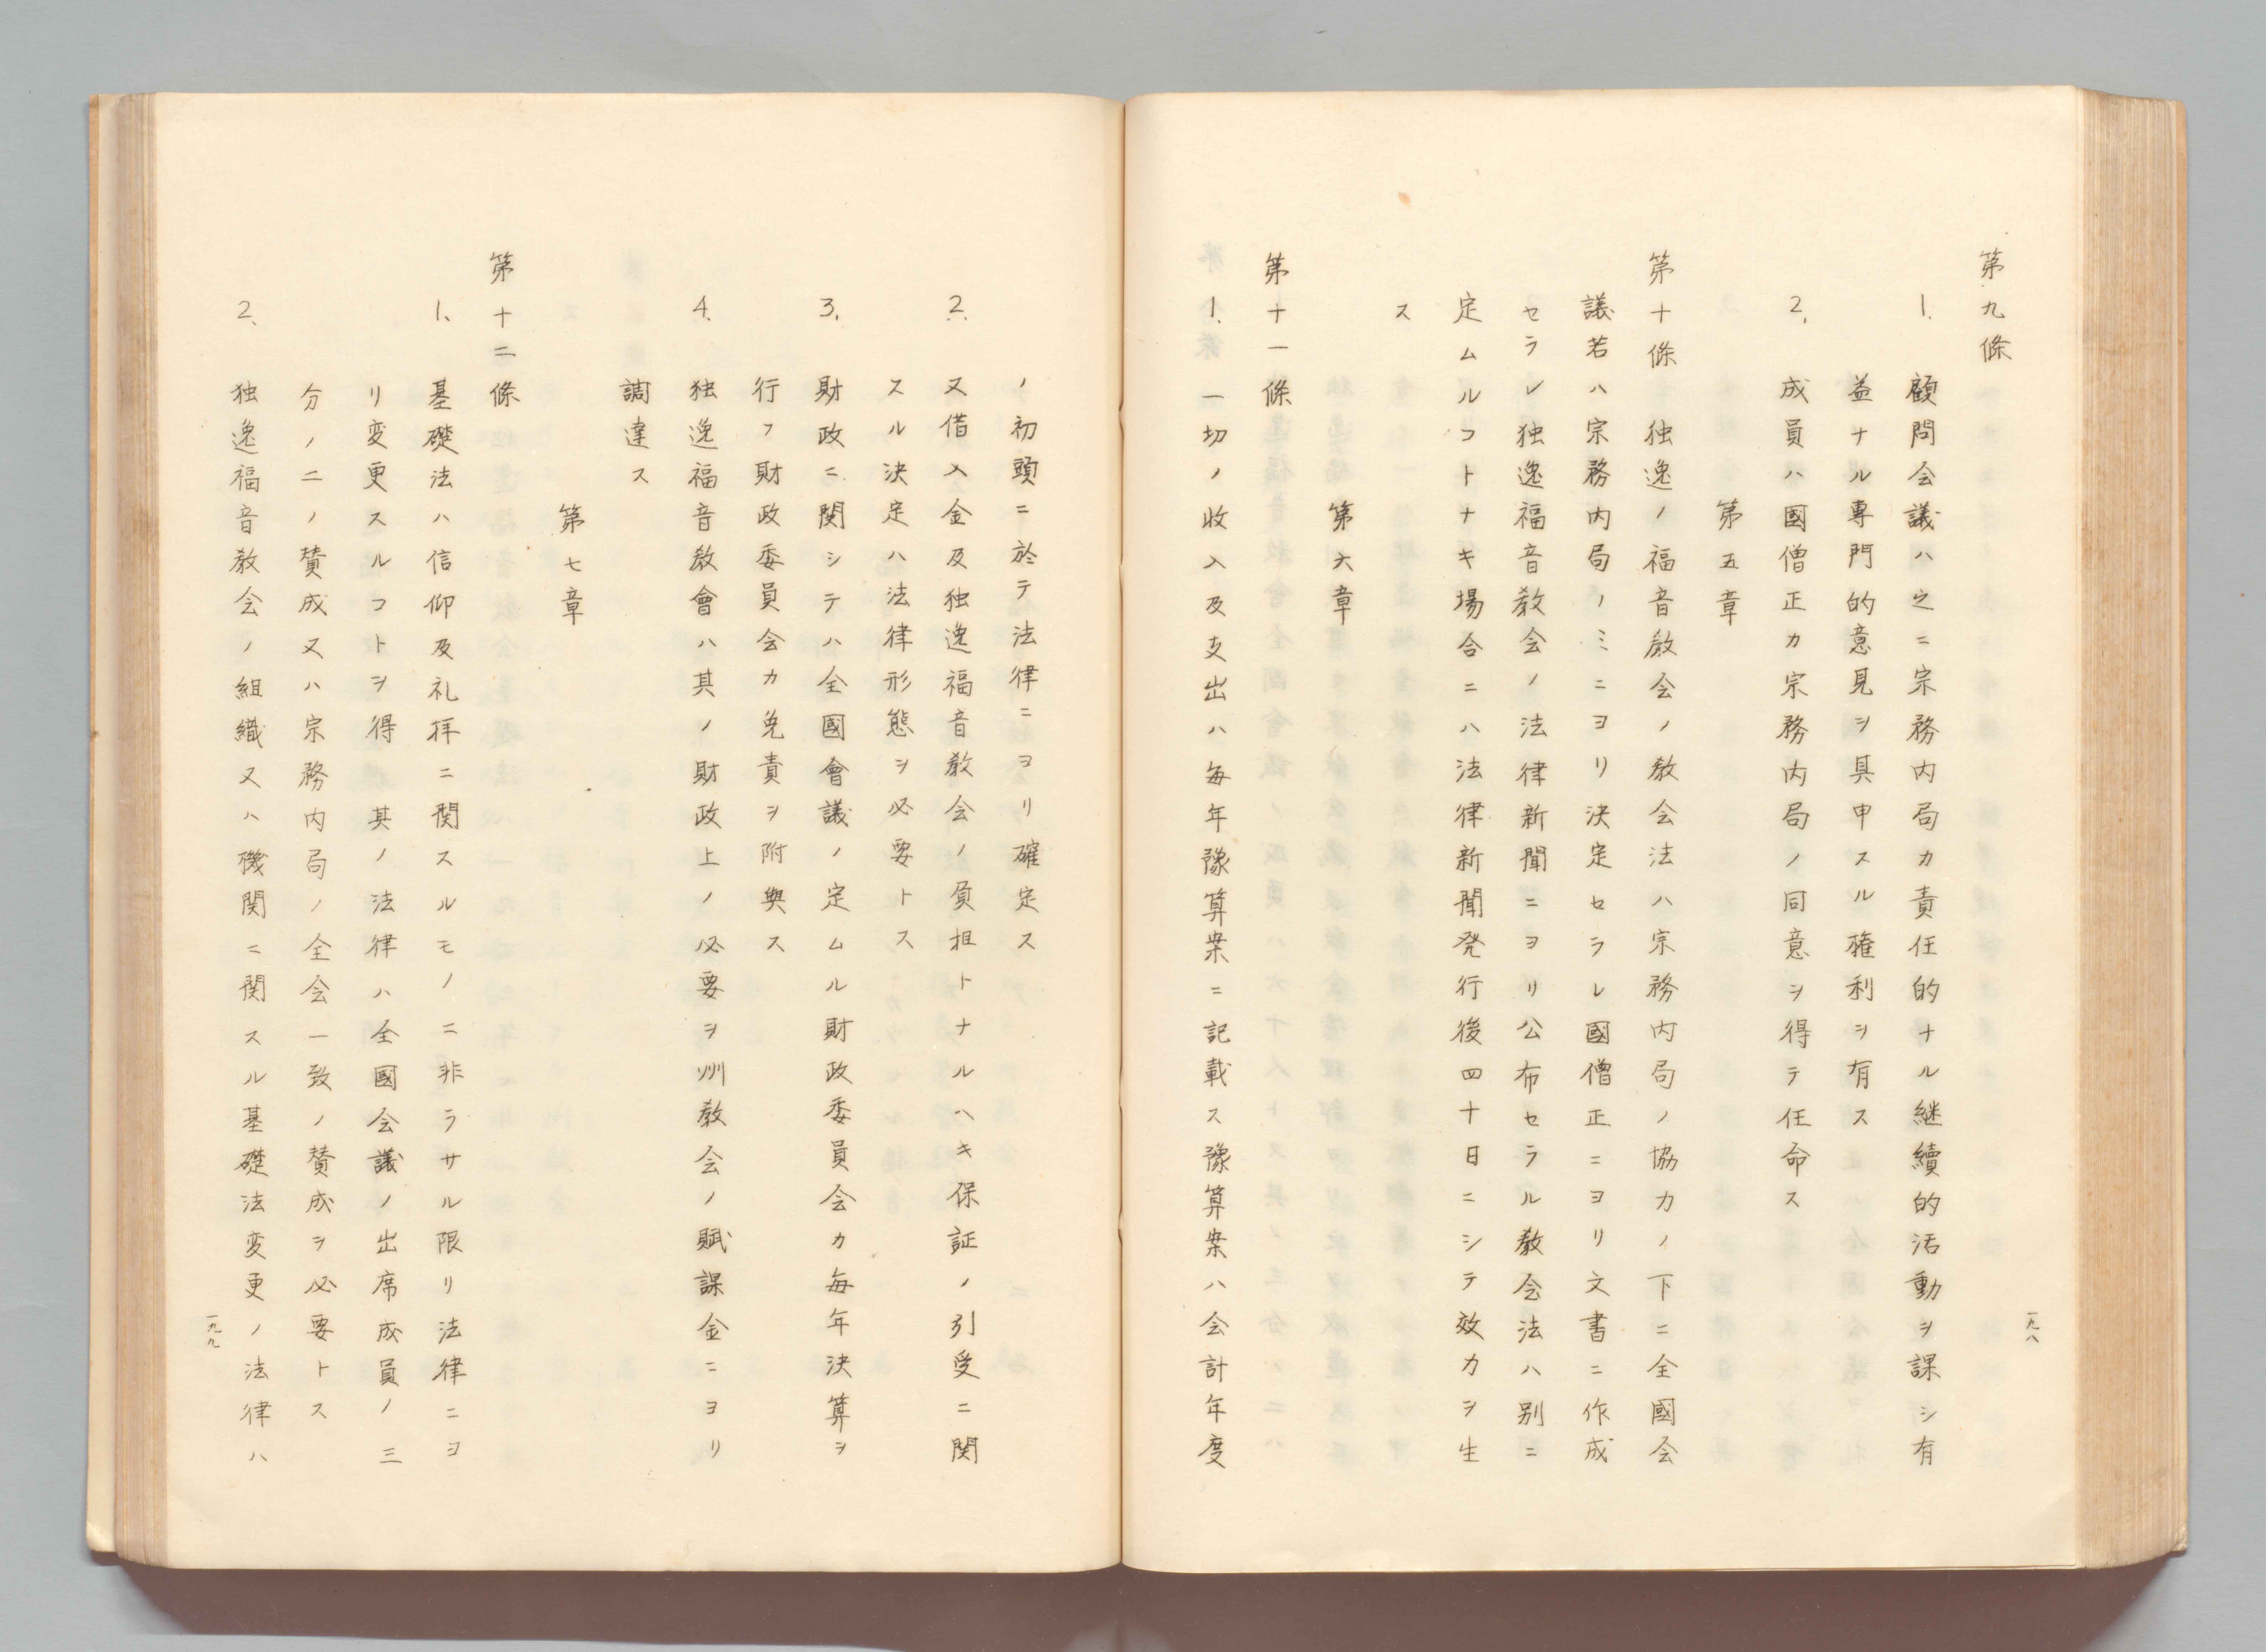 第九條
1. 顧問会議ハ之ニ宗務内局カ責任的ナル継續的活動ヲ課シ有
益ナル專門的意見ヲ具申スル権利ヲ有ス
2. 成員ハ國僧正カ宗務内局ノ同意ヲ得テ任命ス
第五章
第十條 独逸ノ福音教会ノ教会法ハ宗務内局ノ協力ノ下ニ全國会
議若ハ宗務内局ノミニヨリ決定セラレ國僧正ニヨリ文書ニ作成
セラレ独逸福音教会ノ法律新聞ニヨリ公布セラル教会法ハ別ニ
定ムルコトナキ場合ニハ法律新聞発行後四十日ニシテ效力ヲ生
ス
第六章
第十一條
1. 一切ノ收入及支出ハ每年豫算案ニ記載ス豫算案ハ会計年度
一九八
ノ初頭ニ於テ法律ニヨリ確定ス
2. 又借入金及独逸福音教会ノ負担トナルヘキ保証ノ引受ニ関
スル決定ハ法律形態ヲ必要トス
3. 財政ニ関シテハ全國會議ノ定ムル財政委員会カ每年決算ヲ
行フ財政委員会カ免責ヲ附與ス
4. 独逸福音教會ハ其ノ財政上ノ必要ヲ州教会ノ賦課金ニヨリ
調達ス
第七章
第十二條
1、基礎法ハ信仰及礼拝ニ関スルモノニ非ラサル限リ法律ニヨ
リ変更スルコトヲ得 其ノ法律ハ全國会議ノ出席成員ノ三
分ノ二ノ賛成又ハ宗務内局ノ全会一致ノ賛成ヲ必要トス
2、独逸福音教会ノ組織又ハ機関ニ関スル基礎法変更ノ法律ハ
一九九